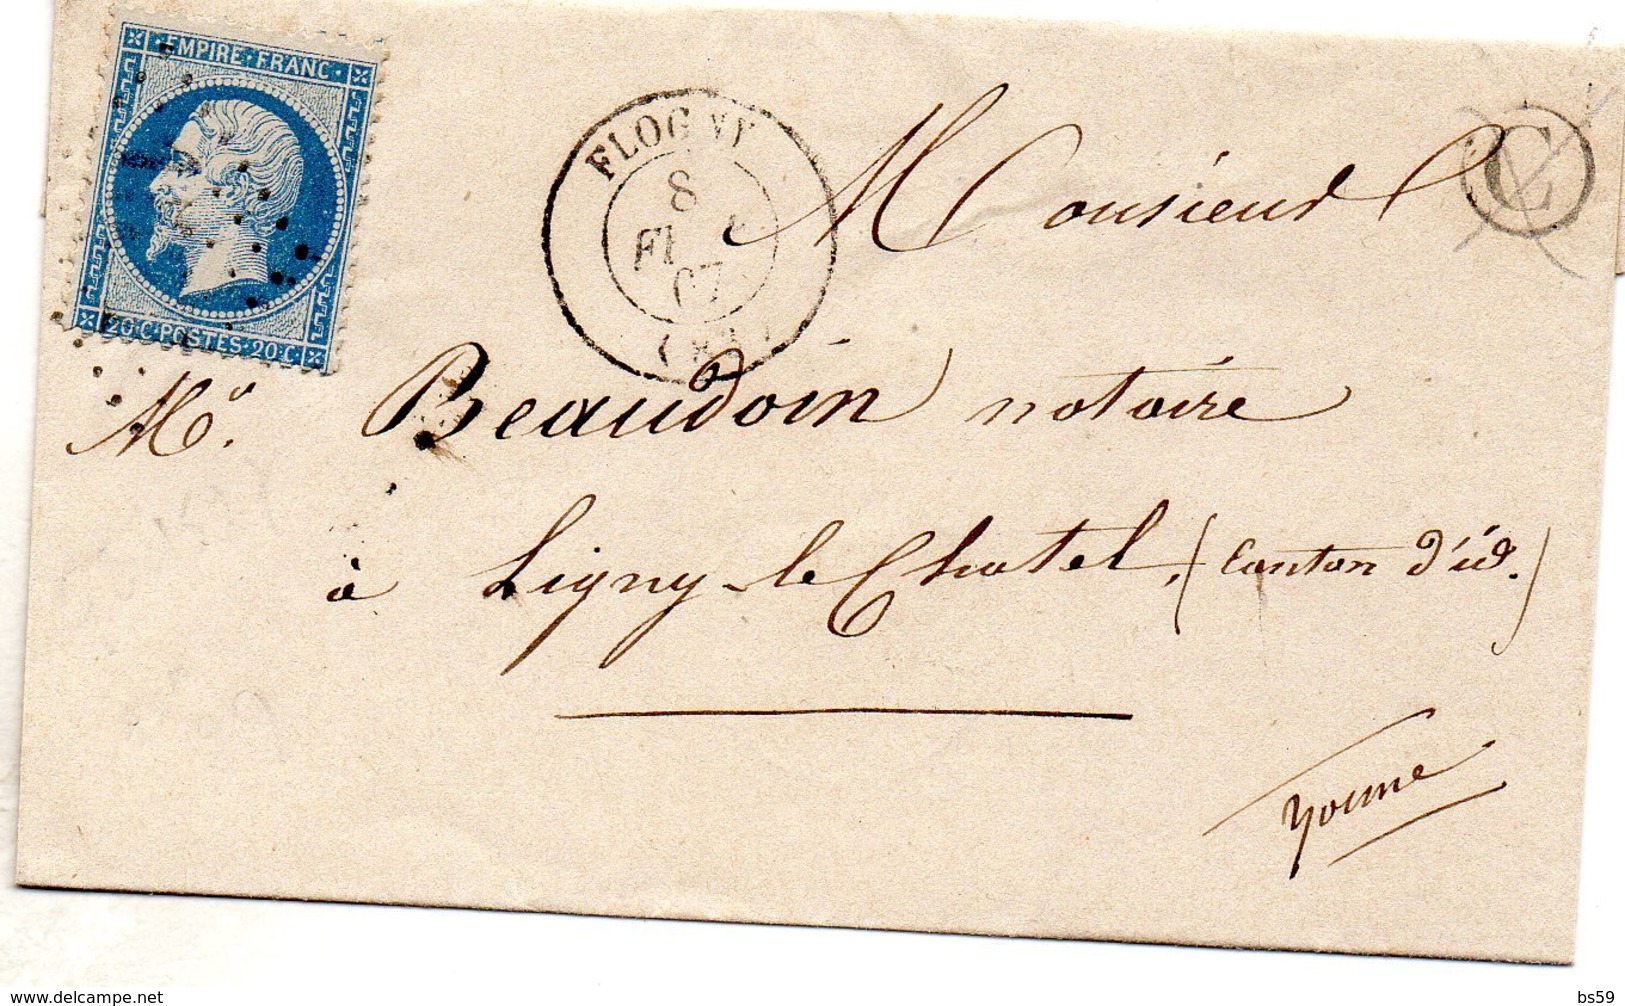 EMPIRE·FRANC·
20·C·POSTES·20·C·
FLOGNY
8
67
C
Monsieur
Me. Beaudoin notaire
à Ligny-le-Chatel. (Canton d'id.)
Yonne
bs59